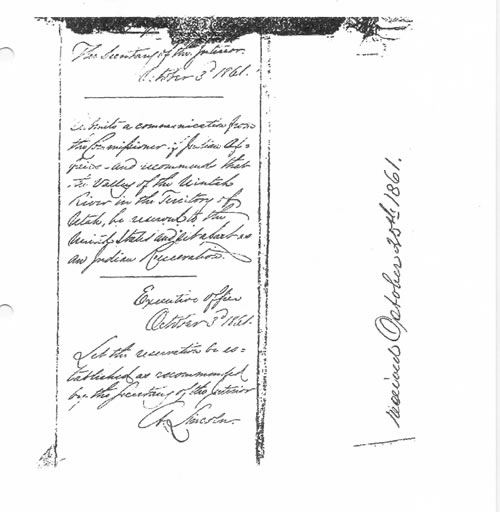 The Secretary of the Interior.
October 3d 1861.
Submits a communication from
the Commissioner of Indian Af=
fairs - and recommends that
the Valley of the Uintah
River in the Territory of
Utah, be reserved to the
United States and set apart as
an Indian Reservation.
Executive Office
October 3d 1861.
Let the reservation be es=
tablished as recommended
by the Secretary of the Interior
A. Lincoln.
received October 20th 1861.